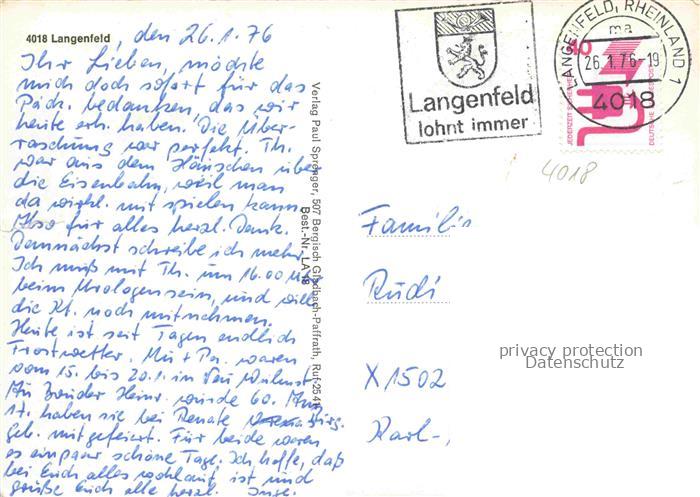 4018 Langenfeld, den 26.1.76
Ihr Lieben, möchte
mich doch sofort für das
Päck. bedanken, das wir
heute erh. haben. Die Über-
raschung war perfekt. Th.
war aus dem Häuschen über
die Eisenbahn, weil man
da wirkl. mit spielen kann.
Also für alles herzl. Dank.
Demnächst schreibe ich mehr.
Ich muß mit Th. um 16.00 Uhr
beim Urologen sein, und will
die Kt. noch mitnehmen.
Heute ist seit Tagen endlich
Frostwetter. Mu + Pa. waren
vom 15. bis 20.1. in
Mu Bruder Heinr. wurde 60. Am
17. haben sie bei Renate
geb. mitgefeiert. Für beide waren
es ein paar schöne Tage. Ich hoffe, daß
bei Euch alles wohlauf ist und
grüße Euch alle herzl. Inge.
Verlag Paul Sprenger, 507 Bergisch Gladbach-Paffrath, Ruf 2541
Best.-Nr. LA 18
Langenfeld
lohnt immer
LANGENFELD, RHEINLAND 1
ma
26.1.76-19
4018
40
JEDERZEIT SICHERHEIT
DEUTSCHE BUNDESPOST
4018
Familie
Rudi
X1502
Karl-,
privacy protection
Datenschutz